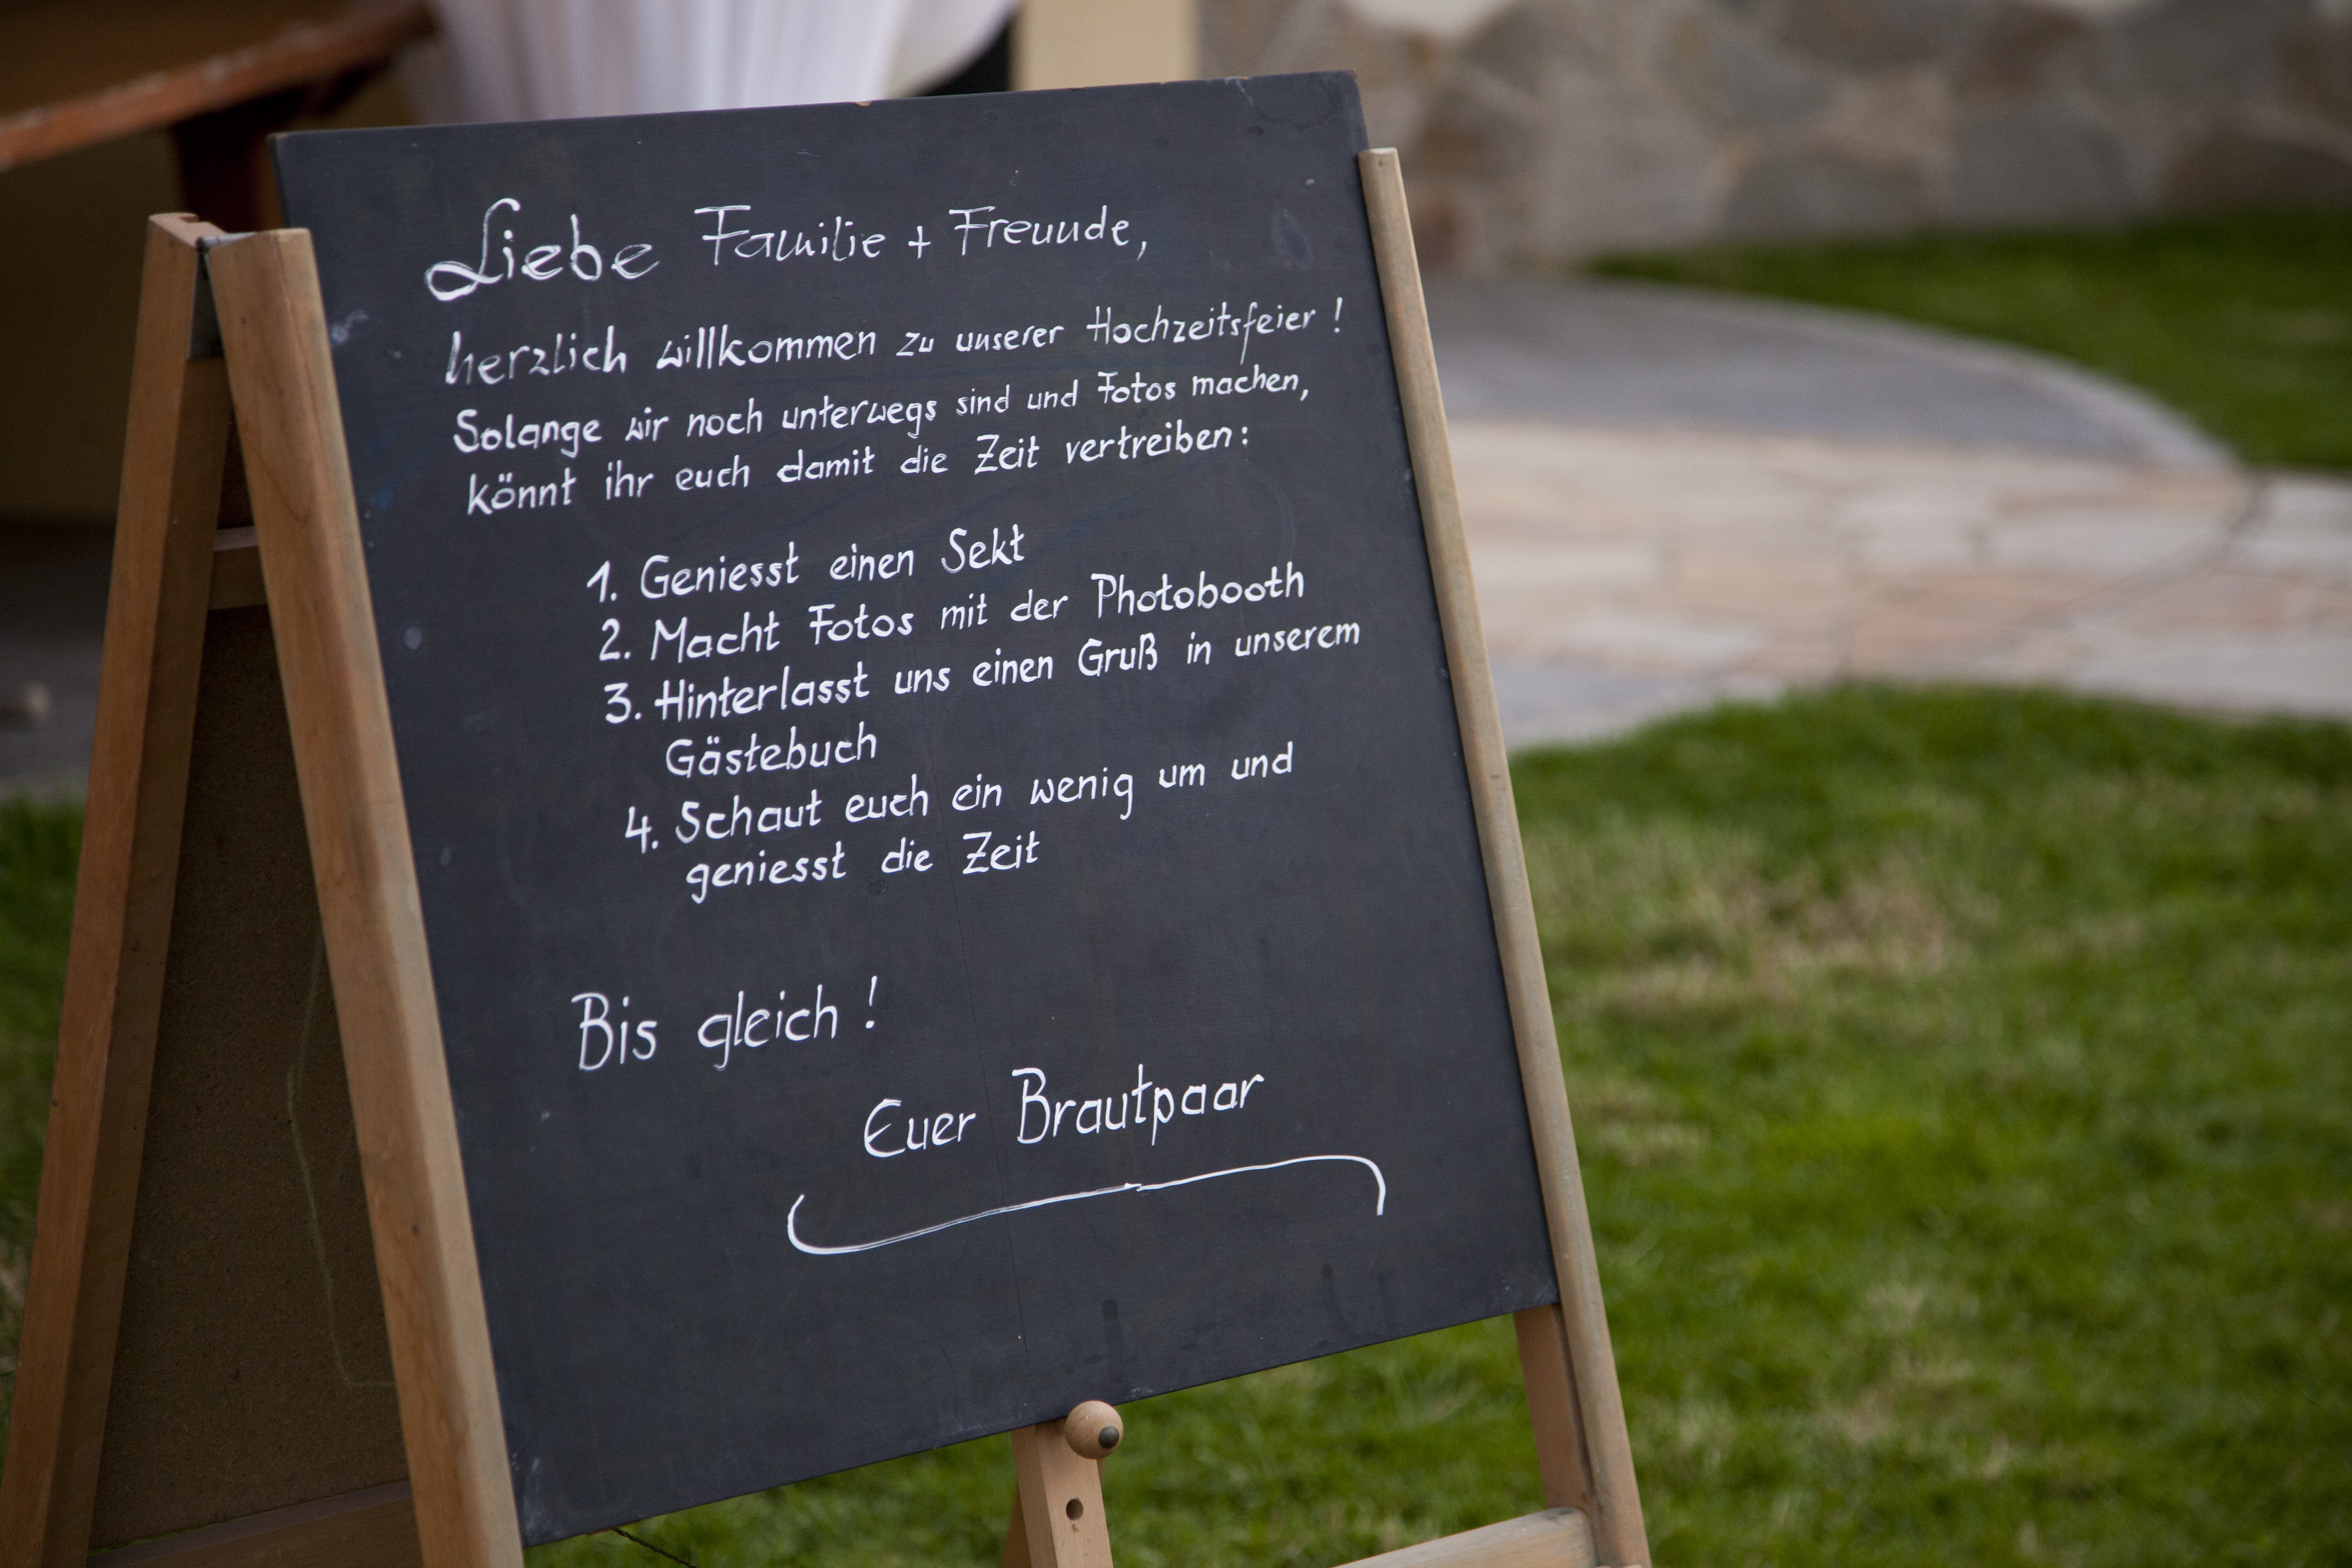 Liebe Familie + Freunde,
herzlich willkommen zu unserer Hochzeitsfeier!
Solange wir noch unterwegs sind und Fotos machen,
könnt ihr euch damit die Zeit vertreiben:
1. Geniesst einen Sekt
2. Macht Fotos mit der Photobooth
3. Hinterlasst uns einen Gruß in unserem
Gästebuch
4. Schaut euch ein wenig um und
geniesst die Zeit
Bis gleich!
Euer Brautpaar